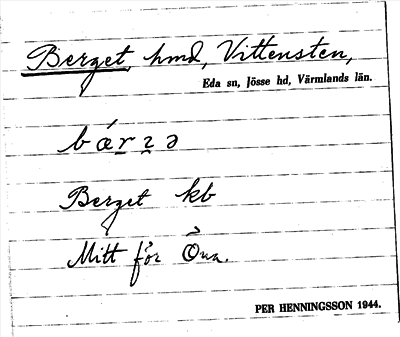 Berget, hmd, Vittensten,
Eda sn, Jösse hd, Värmlands län.
bǽrzə
Berget kb
Mitt för
PER HENNINGSSON 1944.